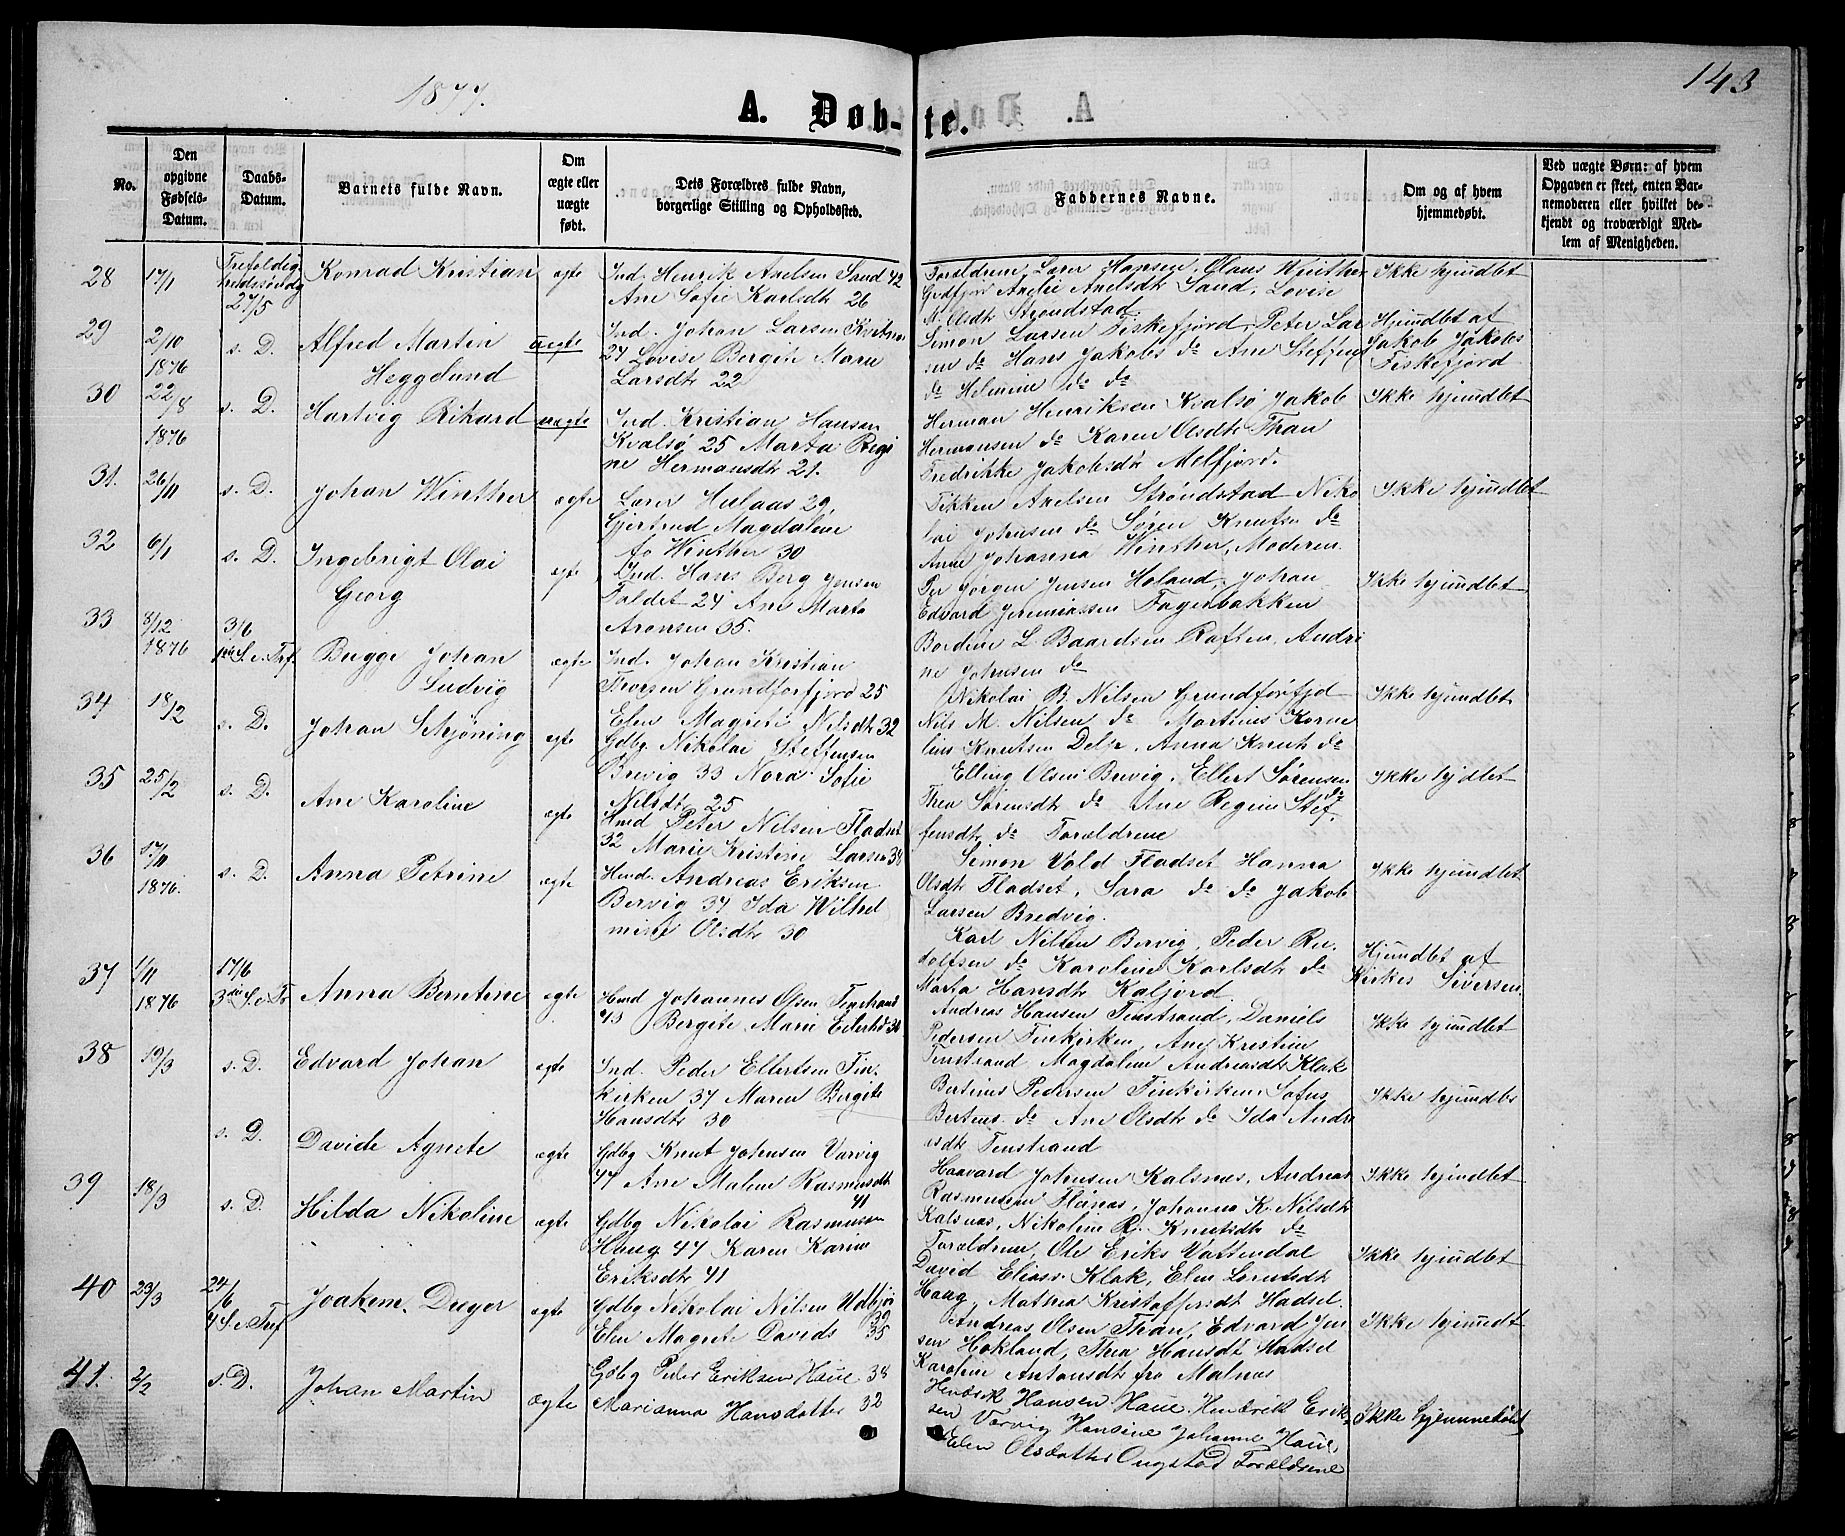 1877.
143
A. Døb-te.
No.
Den opgivne Fødsels-Datum.
Daabs-Datum.
Barnets fulde Navn.
Om ægte eller uægte født.
Dets Forældres fulde Navn, borgerlige Stilling og Opholdssted.
Faddernes Navne.
Om og af hvem hjemmedøbt.
Ved uægte Børn: af hvem Opgaven er skeet, enten Barnemoderen eller hvilket bekjendt og troværdigt Medlem af Menigheden.
28 17/1 27/5 Konrad Kristian ægte Ind. Henrik Axelsen Sand 42
Ane Sofie Karlsdtr 26
Forældrene, Lærer Hansen, Olaus Winther
Amelie Axelsdtr Sand, Lovise
M. Olsdtr Strøndstad.
Ikke hjmdbt
29 2/10 1876 s. D. Alfred Martin Heggelund uægte Ind. Johan Larsen
27 Lovise Bergite Marie
Larsdtr 22
Simon Larsen Fiskefjord, Peter Lar
sen do Hans Jakobs do Ane Steffensd
do Helmine do do
Hjmdbt af
Jakob Jakobs
Fiskefjord
30 22/8 1876 s. D. Hartvig Rikard uægte Ind. Kristian Hansen
Kvalsø 25 Marta Regi
ne Hermansdtr 21.
Herman Henriksen Kvalsø Jakob
Hermansen do Karen Olsdtr Than
Fredrikke Jakobsdtr Melfjord.
Ikke hjmdbt
31. 26/11 s. D. Johan Winther ægte Lærer Hulaas 29
Gjertrud Magdalene
f. Winther 30
Tikken Axelsen Strøndstad Niko
lai Johnsen do Søren Knuts. do
Ane Johanna Winther, Moderen.
Ikke hjmdbt
32 6/1 s. D. Ingebrigt Olai
Georg ægte Ind. Hans Berg Jensen
Faldet 24 Ane Marta
Aronsen 35.
Per Jørgen Jensen Holand, Johan
Edvard Jeremiassen Fagerbakken
Bordine L Baardsen Raften, Andri
ne Johnsen do
Ikke hjmdbt
33 8/12 1876 3/6 Bugge Johan
Ludvig ægte Ind. Johan Kristian
Thorsen Grundforfjord 25
Elen Magrete Nilsdtr 32
Nikolai B. Nilsen Grundførfjd
Nils M. Nilsen do Martinus Korne
lius Knutsen Delp. Anna Knuts do
Ikke hjmdbt
34 18/2 s. D. Johan Schjøning ægte Gdbg. Nikolai Steffensen
Brevig 33 Nora Sofie
Nilsdtr 25
Elling Olsen Brevig, Ellert Sørensen
Thea Sørensdtr do Ane Regine Stef
fensdtr do Forældrene
Ikke hjdbt
35 25/2 s. D. Ane Karoline ægte Hmd Peter Nilsen Fladset
32 Marie Kristine Larsen 38
Simon Vold Fladset Hanna
Olsdtr Fladset, Sara do do Jakob
Larsen Bredvig.
Ikke hjmdbt
36 17/11 1876. s. D. Anna Petrine ægte Hmd. Andreas Eriksen
Bervig 37 Ida Wilhel
mine Olsdtr 30
Karl Nilsen Bervig, Peder Ru
dolfsen do Karoline Karlsdtr do
Marta Hansdtr Kaljord
Hjmdbt af
Kirkes Siversen.
37 1/11 1876 17/6 Anna Berntine ægte Hmd Johannes Olsen Finstrand
43 Bergite Marie
Andreas Hansen Finstrand, Daniels
Pedersen Finkirken, Ane Kristine
Finstrand Magdalene Andreasdtr Klak
Ikke hjmdbt
38 19/3 s. D. Edvard Johan ægte Ind. Peder Ellertsen Fin-
kirken 37 Maren Bergite
Hansdtr 30
Bertinus Pedersen Finkirken, Sofus
Bertinus do Ane Olsdtr do Ida Andre
asdtr Finstrand
Ikke hjmdbt
s. D. Davide Agnete ægte Gdbg Knut Johnsen Varvig
47 Ane Malene Rasmusdtr
41
Haavard Johnsen Kalsnes, Andreas
Rasmussen, Johanna K. Nilsdtr
Kalsnæs, Nikoline R. Knutsdtr do
Ikke hjmdbt
39 18/3 s. D. Hilda Nikoline ægte Gdbg Nikolai Rasmussen
Haug 47 Karen Karine
Eriksdtr 41
Forældrene, Ole Eriks Vattendal
David Elias. Klak, Elen Lorntsdtr
Haug, Mathea Kristoffersdtr Hadsel
Ikke hjmdbt
40 23/3 24/6 Joakem Duger ægte Gdbg Nikolai Nilsen
32
Elen Magrete Davids 35
Andreas Olsen Than, Edvard Jen
sen Hokland, Thea Hansdtr Hadsel
Karoline Antonsdtr fra Melnes
Ikke hjmdt
41. 2/2 s. D. Johan Martin ægte Gdbg Peder Eriksen Haue 38
Marianna Hansdatter 32
Hendrik Hansen Haue, Hendrik Erik-
sen Varvig Hansine Johanne Haue,
Elen Olsdatter Ongstad Forældrene
Ikke hjemmedøbt